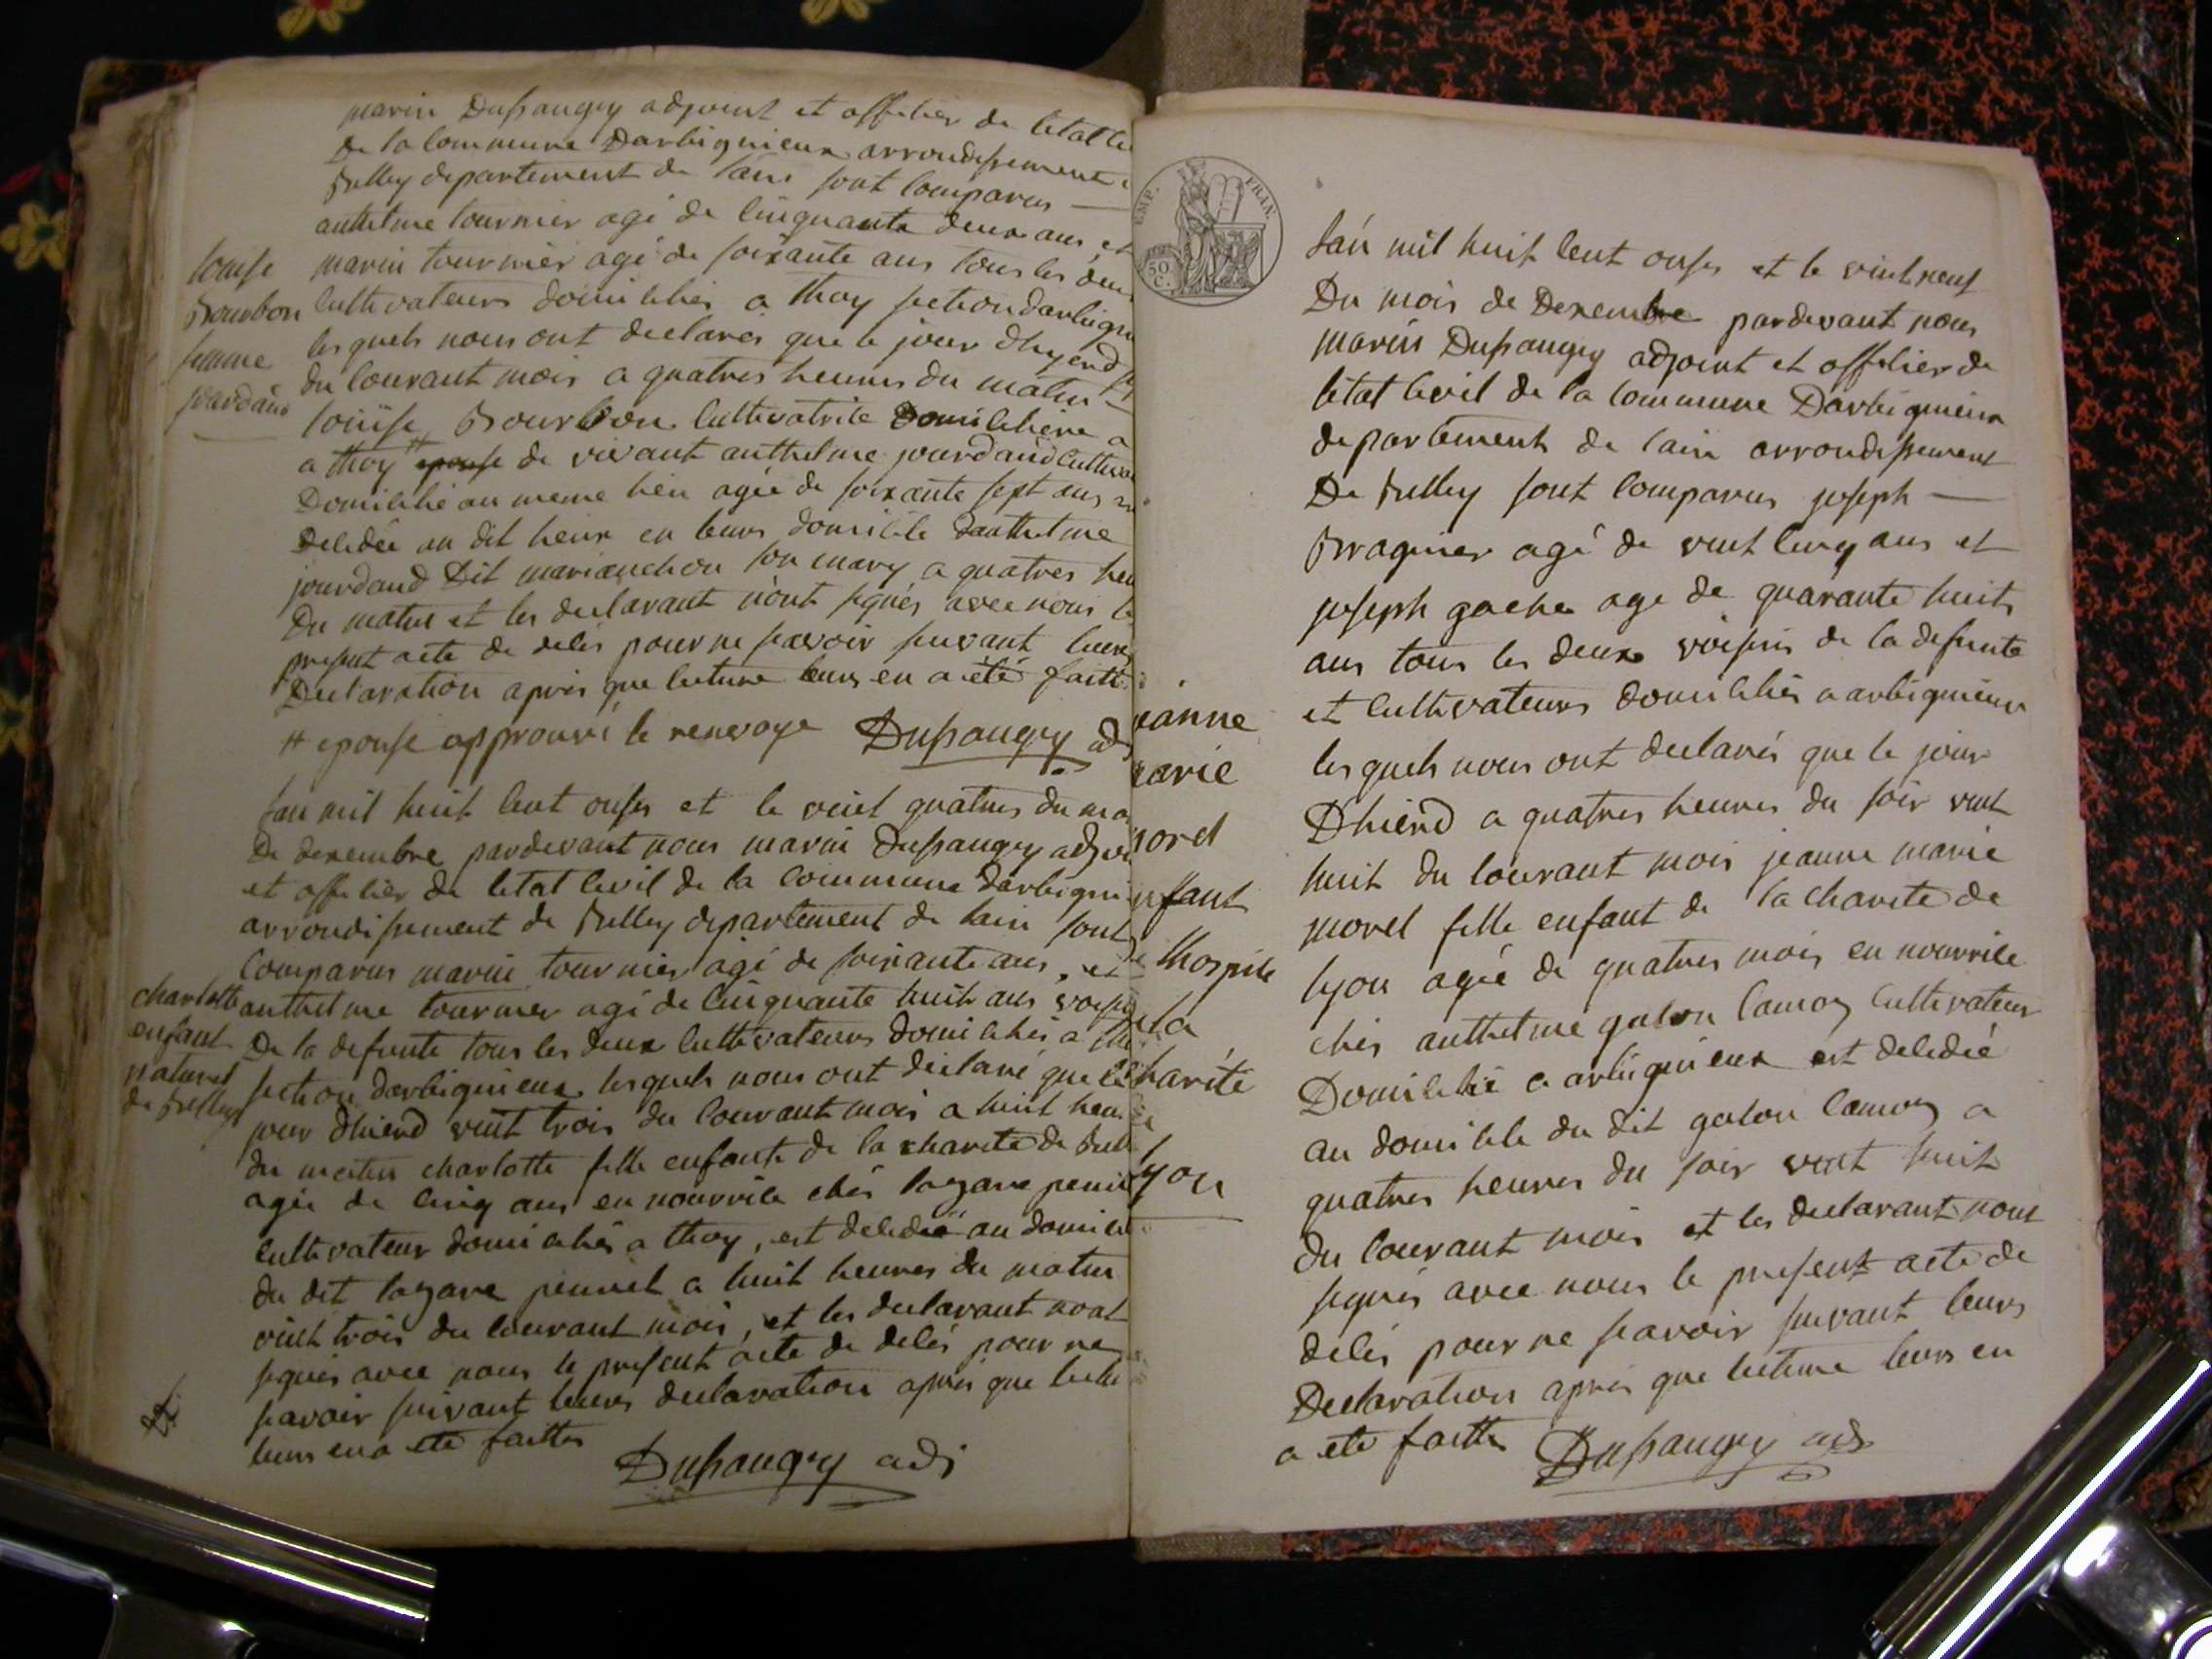 marin Dupaugey adjoint et officier de letat
De la commune Darbignieux arrondissement
Belley departement de lain sont comparus
anthelme tournier agé de cinquante deux ans et
marin tournier agé de soixante ans tous les deux
cultivateurs domiciliés a thoy section
lesquels nous ont declarés que le jour
du courant mois a quatres heures du matin
louise Bourbon cultivatrice Domiciliere a
a thoy # epouse de vivant anthelme jourdand
Domicilié au meme lieu agée de soixante sept ans
Decedée au dit lieu en leurs domicile danthelme
jourdand Dit marianchon son mary a quatres
Du matin et les declarant n'ont signés avec nous
present acte de decés pour ne scavoir suivant leurs
Declaration aprés que lecture leurs en a été faitte
# epouse approuvé le renvoye Dupaugey
louise
Bourbon
femme
jourdand
lan mil huit cent onse et le vint quatres du
De decembre pardevant nous marin Dupaugey
et officier de letat civil de la commune
arrondissement de Belley departement de lain sont
comparus marin tournier agé de soixante ans, et
anthelme tournier agé de cinquante huit ans
De la defunte tous les deux cultivateurs domiciliés a
section darbignieux lesquels nous ont declaré que le
jour dhierd vint trois du courant mois a huit
du matin charlotte fille enfante de la charité de
agée de cinq ans en nourrice chés lazare
cultivateur domicilié a thoy, est decedée au
du dit lazare a huit heures du matin
vint trois du courant mois, et les declarant nont
signés avec nous le present acte de decés pour ne
scavoir suivant leurs declaration aprés que
leurs en a eté faittes
Dupaugey adj
charlotte
enfant
naturel
de Belley
EMP. FRAN.
50 C.
lan mil huit cent onse et le vint neuf
Du mois de Decembre pardevant nous
marin Dupaugey adjoint et officier de
letat civil de la commune Darbignieux
departement de lain arrondissement
De Belley sont comparus joseph
Braguier agé de vint cinq ans et
joseph gache age de quarante huits
ans tous les deux voisins de la defunte
et cultivateurs domiciliés a arbignieux
lesquels nous ont declarés que le jour
D'hierd a quatres heures du soir vint
huit du courant mois jeanne marie
morel fille enfant de la charité de
lyon agée de quatres mois en nourrice
chés anthelme lamoy cultivateur
Domicilié a arbignieux est decedée
au domicile du dit lamoy a
quatres heures du soir vint huit
du courant mois et les declarant nont
signés avec nous le present acte de
decés pour ne scavoir suivant leurs
Declaration aprés que lecture leurs en
a eté faitte Dupaugey adj
eanne
arie
orel
nfant
thospice
la
harité
yon